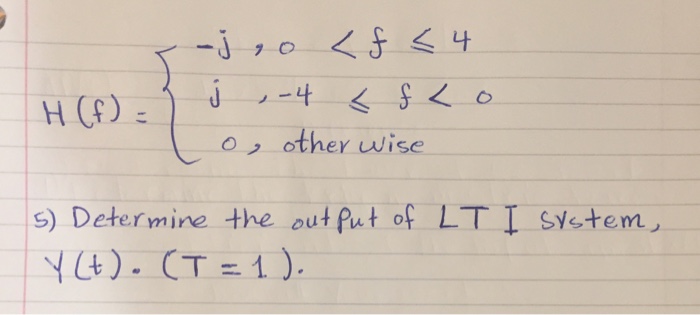 -j , 0 < f ≤ 4
H(f) = { j , -4 ≤ f < 0
0 , otherwise
5) Determine the output of LTI system,
Y(t). (T = 1).